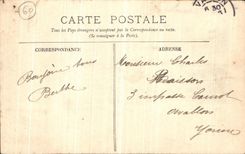 60
CARTE POSTALE
Tous les Pays étrangers n'acceptent pas la Correspondance au recto.
(Se renseigner à la Poste).
CORRESPONDANCE
ADRESSE
30
Bonjour à tous
Berthe
Monsieur Charles
3 impasse Carnot
Avallon
Yonne